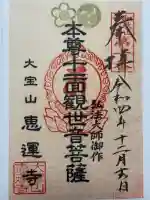 奉拝
令和四年十二月六日
弘法大師御作
本尊十一面観世音菩薩
大宝山
恵運寺